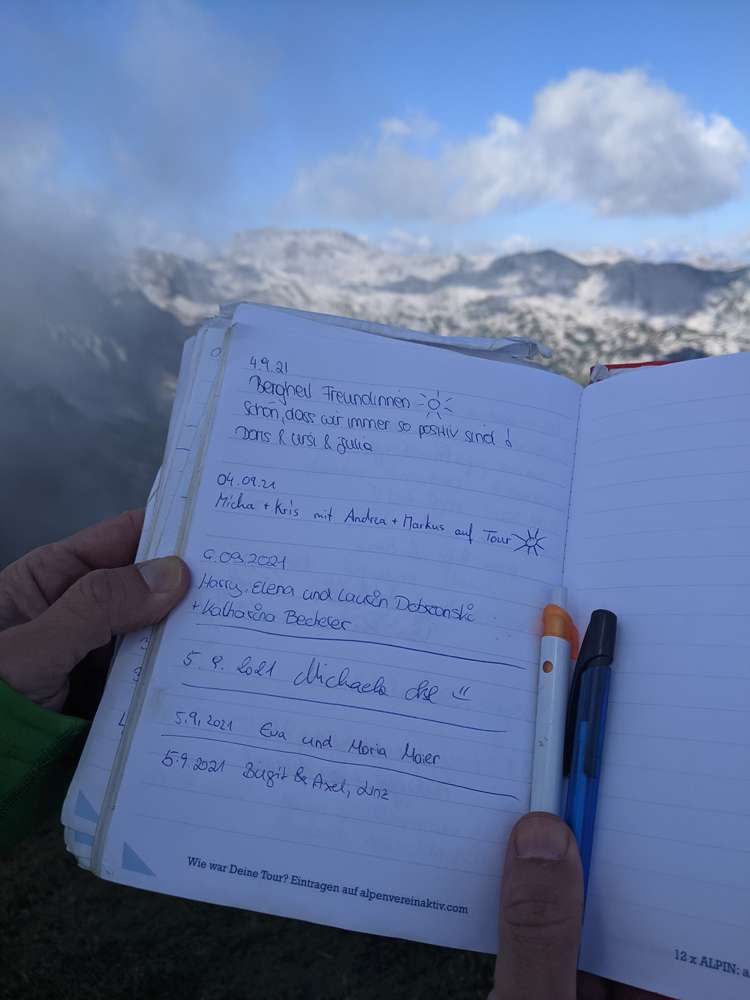 4.9.21
Bergheil Freundinnen
schön, dass wir immer so positiv sind!
Doris & Ursi & Julia
04.09.21
Micha + Kris mit Andrea + Markus auf Tour
09.2021
Harry, Elena und
+ Katharina
5. 9. 2021 Michaela
5.9.2021 Eva und Maria Maier
5.9.2021 Birgit & Axel, Linz
Wie war Deine Tour? Eintragen auf alpenvereinaktiv.com
12 x ALPIN: a